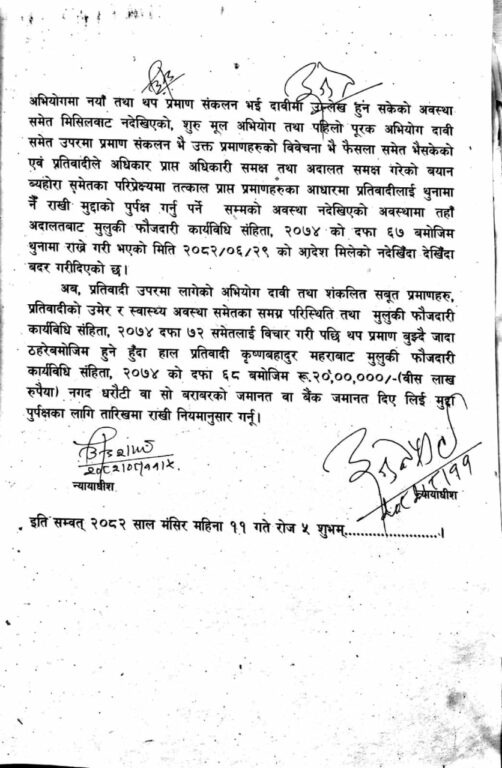 अभियोगमा नयाँ तथा थप प्रमाण संकलन भई दाबीमा उल्लेख हुन सकेको अवस्था
समेत मिसिलबाट नदेखिएको, शुरु मूल अभियोग तथा पहिलो पूरक अभियोग दावी
समेत उपरमा प्रमाण संकलन भै उक्त प्रमाणहरुको विवेचना भै फैसला समेत भैसकेको
एवं प्रतिवादीले अधिकार प्राप्त अधिकारी समक्ष तथा अदालत समक्ष गरेको बयान
ब्यहोरा सुमेतका परिप्रेक्ष्यमा तत्काल प्राप्त प्रमाणहरुका आधारमा प्रतिवादीलाई थुनामा
नैं राखी मुद्दाको पुर्पक्ष गर्नु पर्ने सम्मको अवस्था नदेखिएको अवस्थामा तहाँ
अदालतबाट मुलुकी फौजदारी कार्यविधि संहिता, २०७४ को दफा ६७ बमोजिम
थुनामा राख्ने गरी भएको मिति २०८२/०६/२९ को आदेश मिलेको नदेखिँदा देखिँदा
बदर गरीदिएको छ।
अब, प्रतिवादी उपरमा लागेको अभियोग दावी तथा शंकलित सबूत प्रमाणहरु,
प्रतिवादीको उमेर र स्वास्थ्य अवस्था समेतका समग्र परिस्थिति तथा मुलुकी फौजदारी
कार्यविधि संहिता, २०७४ दफा ७२ समेतलाई विचार गरी पछि थप प्रमाण बुझ्दै जादा
ठहरेबमोजिम हुने हुँदा हाल प्रतिवादी कृष्णबहादुर महराबाट मुलुकी फौजदारी
कार्यविधि संहिता, २०७४ को दफा ६८ बमोजिम रू.२०,००,०००/-(बीस लाख
रुपैया) नगद धरौटी वा सो बराबरको जमानत वा बैंक जमानत दिए लिई मुद्दा
पुर्पक्षका लागि तारिखमा राखी नियमानुसार गर्नू।
न्यायाधीश
न्यायाधीश
इति सम्वत् २०८२ साल मंसिर महिना ११ गते रोज ५ शुभम्........................।